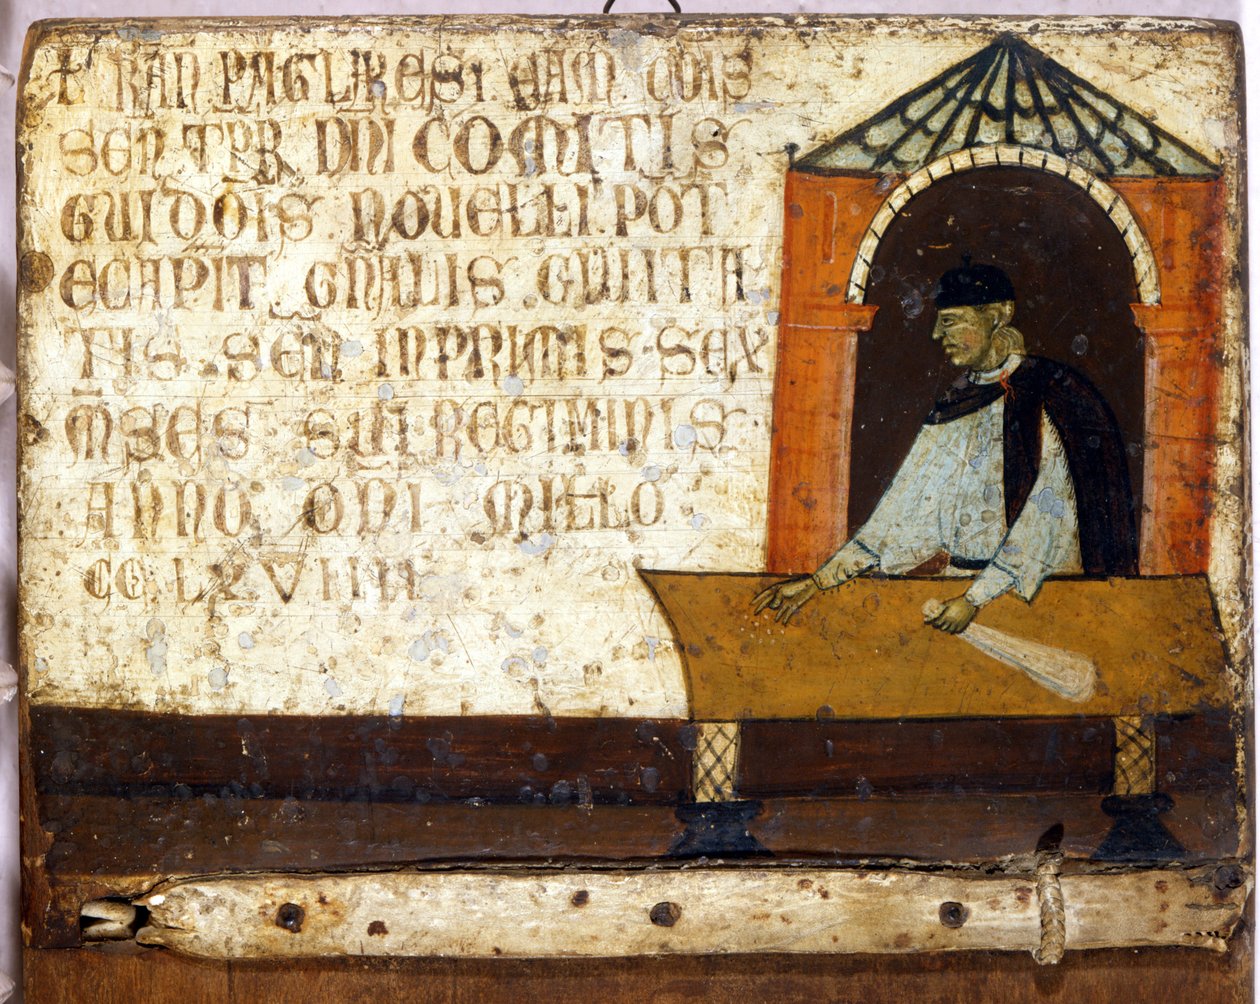 RAN. PAGLARESI. CAM. CŌIS
SEN. TPR. DNI COMITIS
GUIDOIS. NOUELLI. POT
ECAPIT. GNALIS. CIUITA
TIS. SEN. INPRIMIS. SEX
MSES. SUI REGIMINIS.
ANNO. DNI. MILLO.
CC. LXVIIII